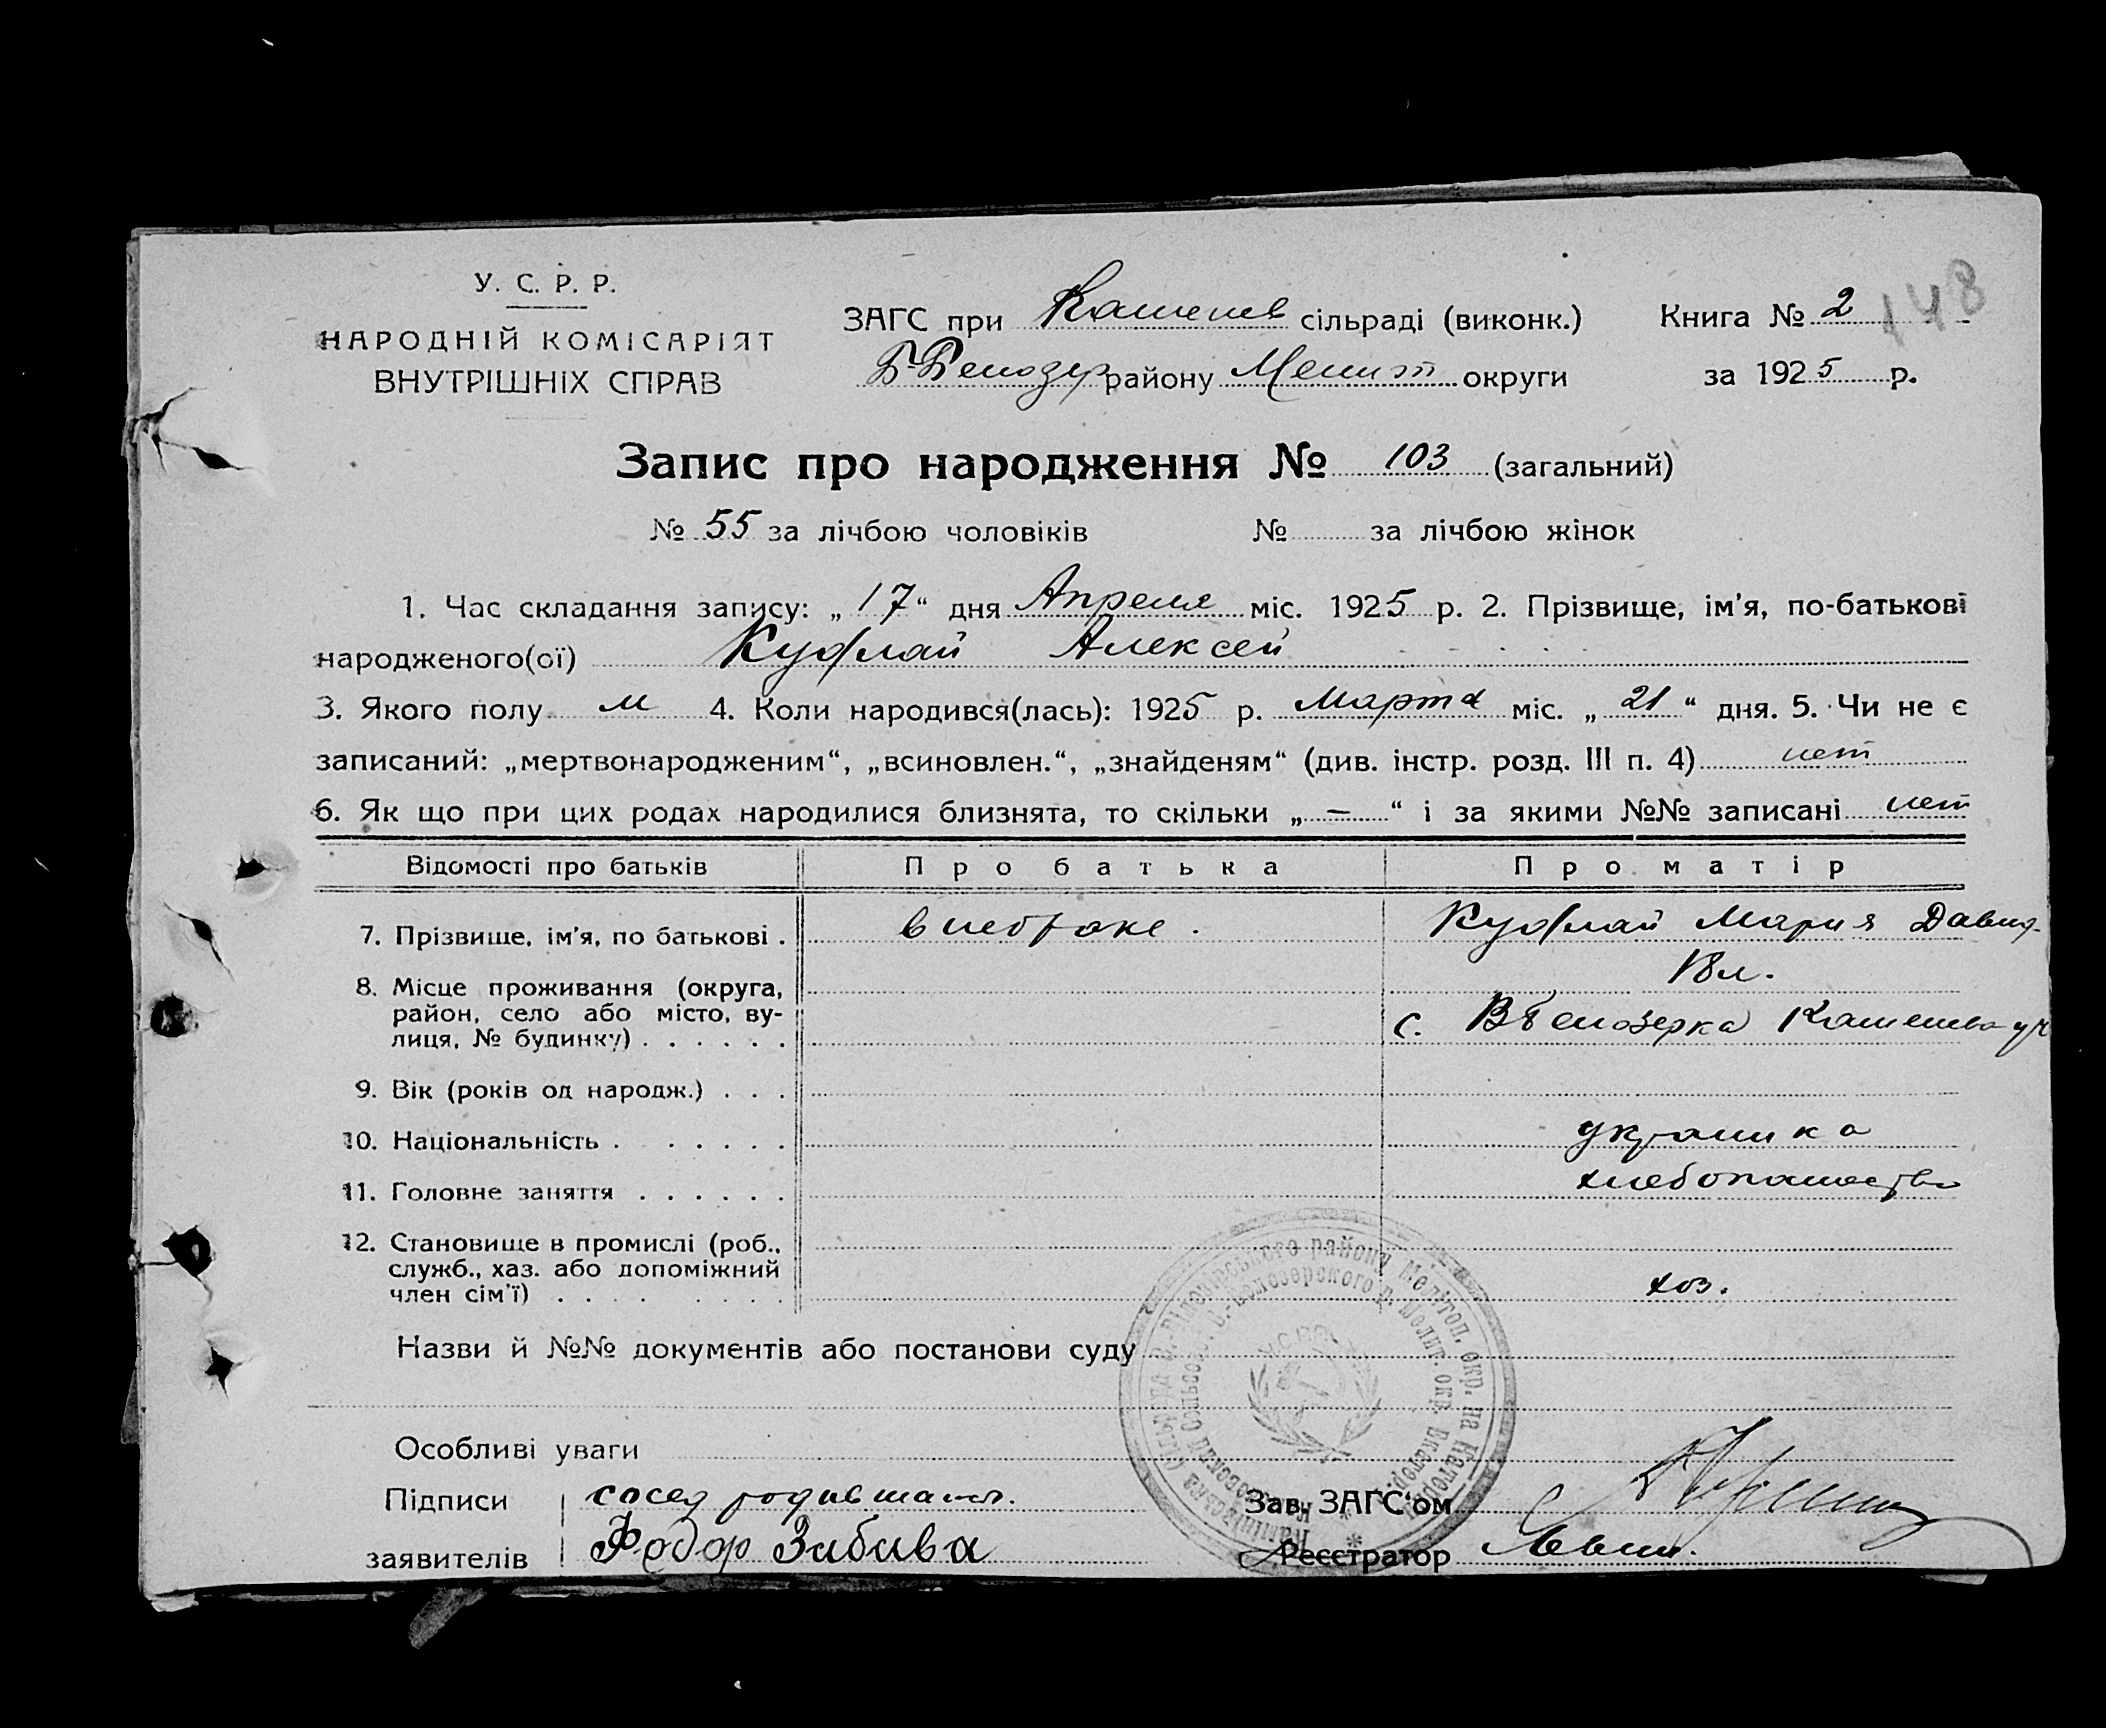 У. С. Р. Р.
НАРОДНІЙ КОМІСАРІЯТ
ВНУТРІШНІХ СПРАВ
ЗАГС при сільраді (виконк.)
Б-Белозер району Мелит округи
Книга № 2
148
за 1925 р.
Запис про народження № 103 (загальний)
№ 55 за лічбою чоловіків № за лічбою жінок
1. Час складання запису: „17“ дня Апреля міс. 1925 р. 2. Прізвище, ім'я, по-батькові
народженого(ої) Алексей
3. Якого полу м 4. Коли народився(лась): 1925 р. Марта міс. „21“ дня. 5. Чи не є
записаний: „мертвонародженим“, „всиновлен.“, „знайденям“ (див. інстр. розд. III п. 4) нет
6. Як що при цих родах народилися близнята, то скільки „—“ і за якими №№ записані нет
Відомості про батьків Про батька Про матір
7. Прізвище, ім'я, по батькові . внебраке . Мария Давид.
18 л.
8. Місце проживання (округа,
район, село або місто, ву-
лиця, № будинку) . . . . . . с. ВБелозерка
9. Вік (років од народж.) . . .
10. Національність . . . . . . украинка
11. Головне заняття . . . . . . хлебопашество
12. Становище в промислі (роб.,
служб., хаз. або допоміжний
член сім'ї) . . . . . . . . хоз.
Назви й №№ документів або постанови суду
Особливі уваги
Підписи сосед
заявителів Фодор Забава
Зав. ЗАГС'ом
Реєстратор